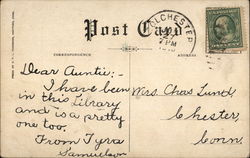 Post Card
COLCHESTER
7 PM
CORRESPONDENCE
ADDRESS
Dear Auntie:-
I have been
in this Library
and is a pretty
one too.
From Tyra
Samuelson
Mrs. Chas Lund,
Chester,
Conn.